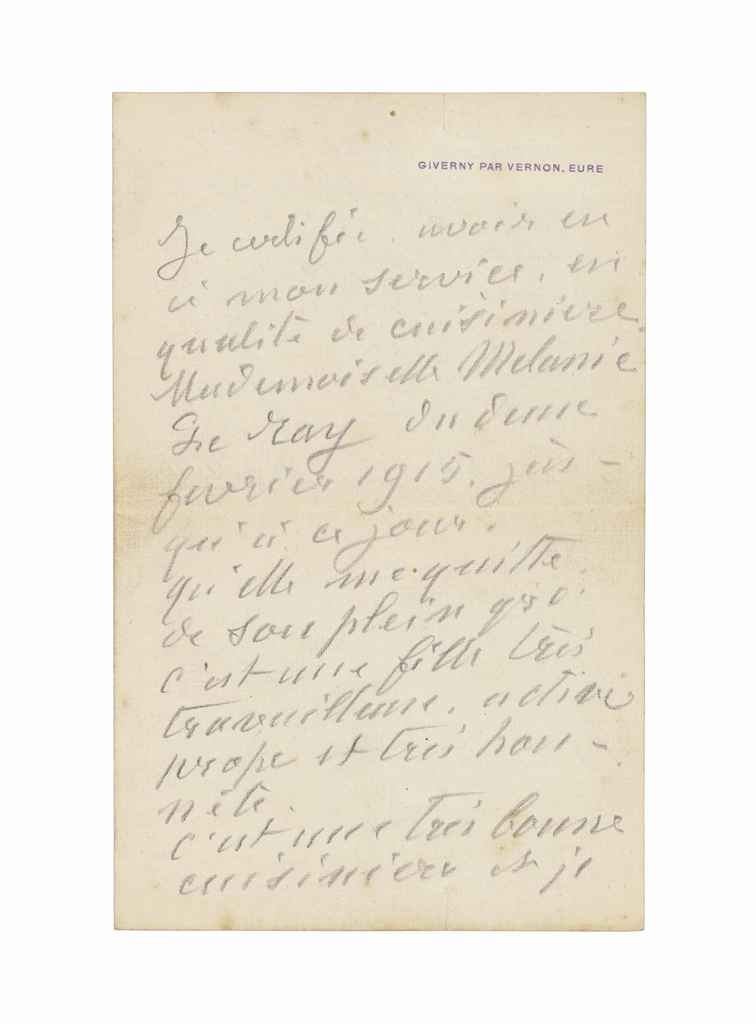 GIVERNY PAR VERNON, EURE
Je certifie avoir eu
à mon service, en
qualité de cuisinière
Mademoiselle Melanie
Le Ray du
fevrier 1915, jus-
qu'à ce jour.
qu'elle me quitte
de son plein gré.
c'est une fille très
travailleuse, active
prope et très hon-
nête.
c'est une très bonne
cuisinière et je